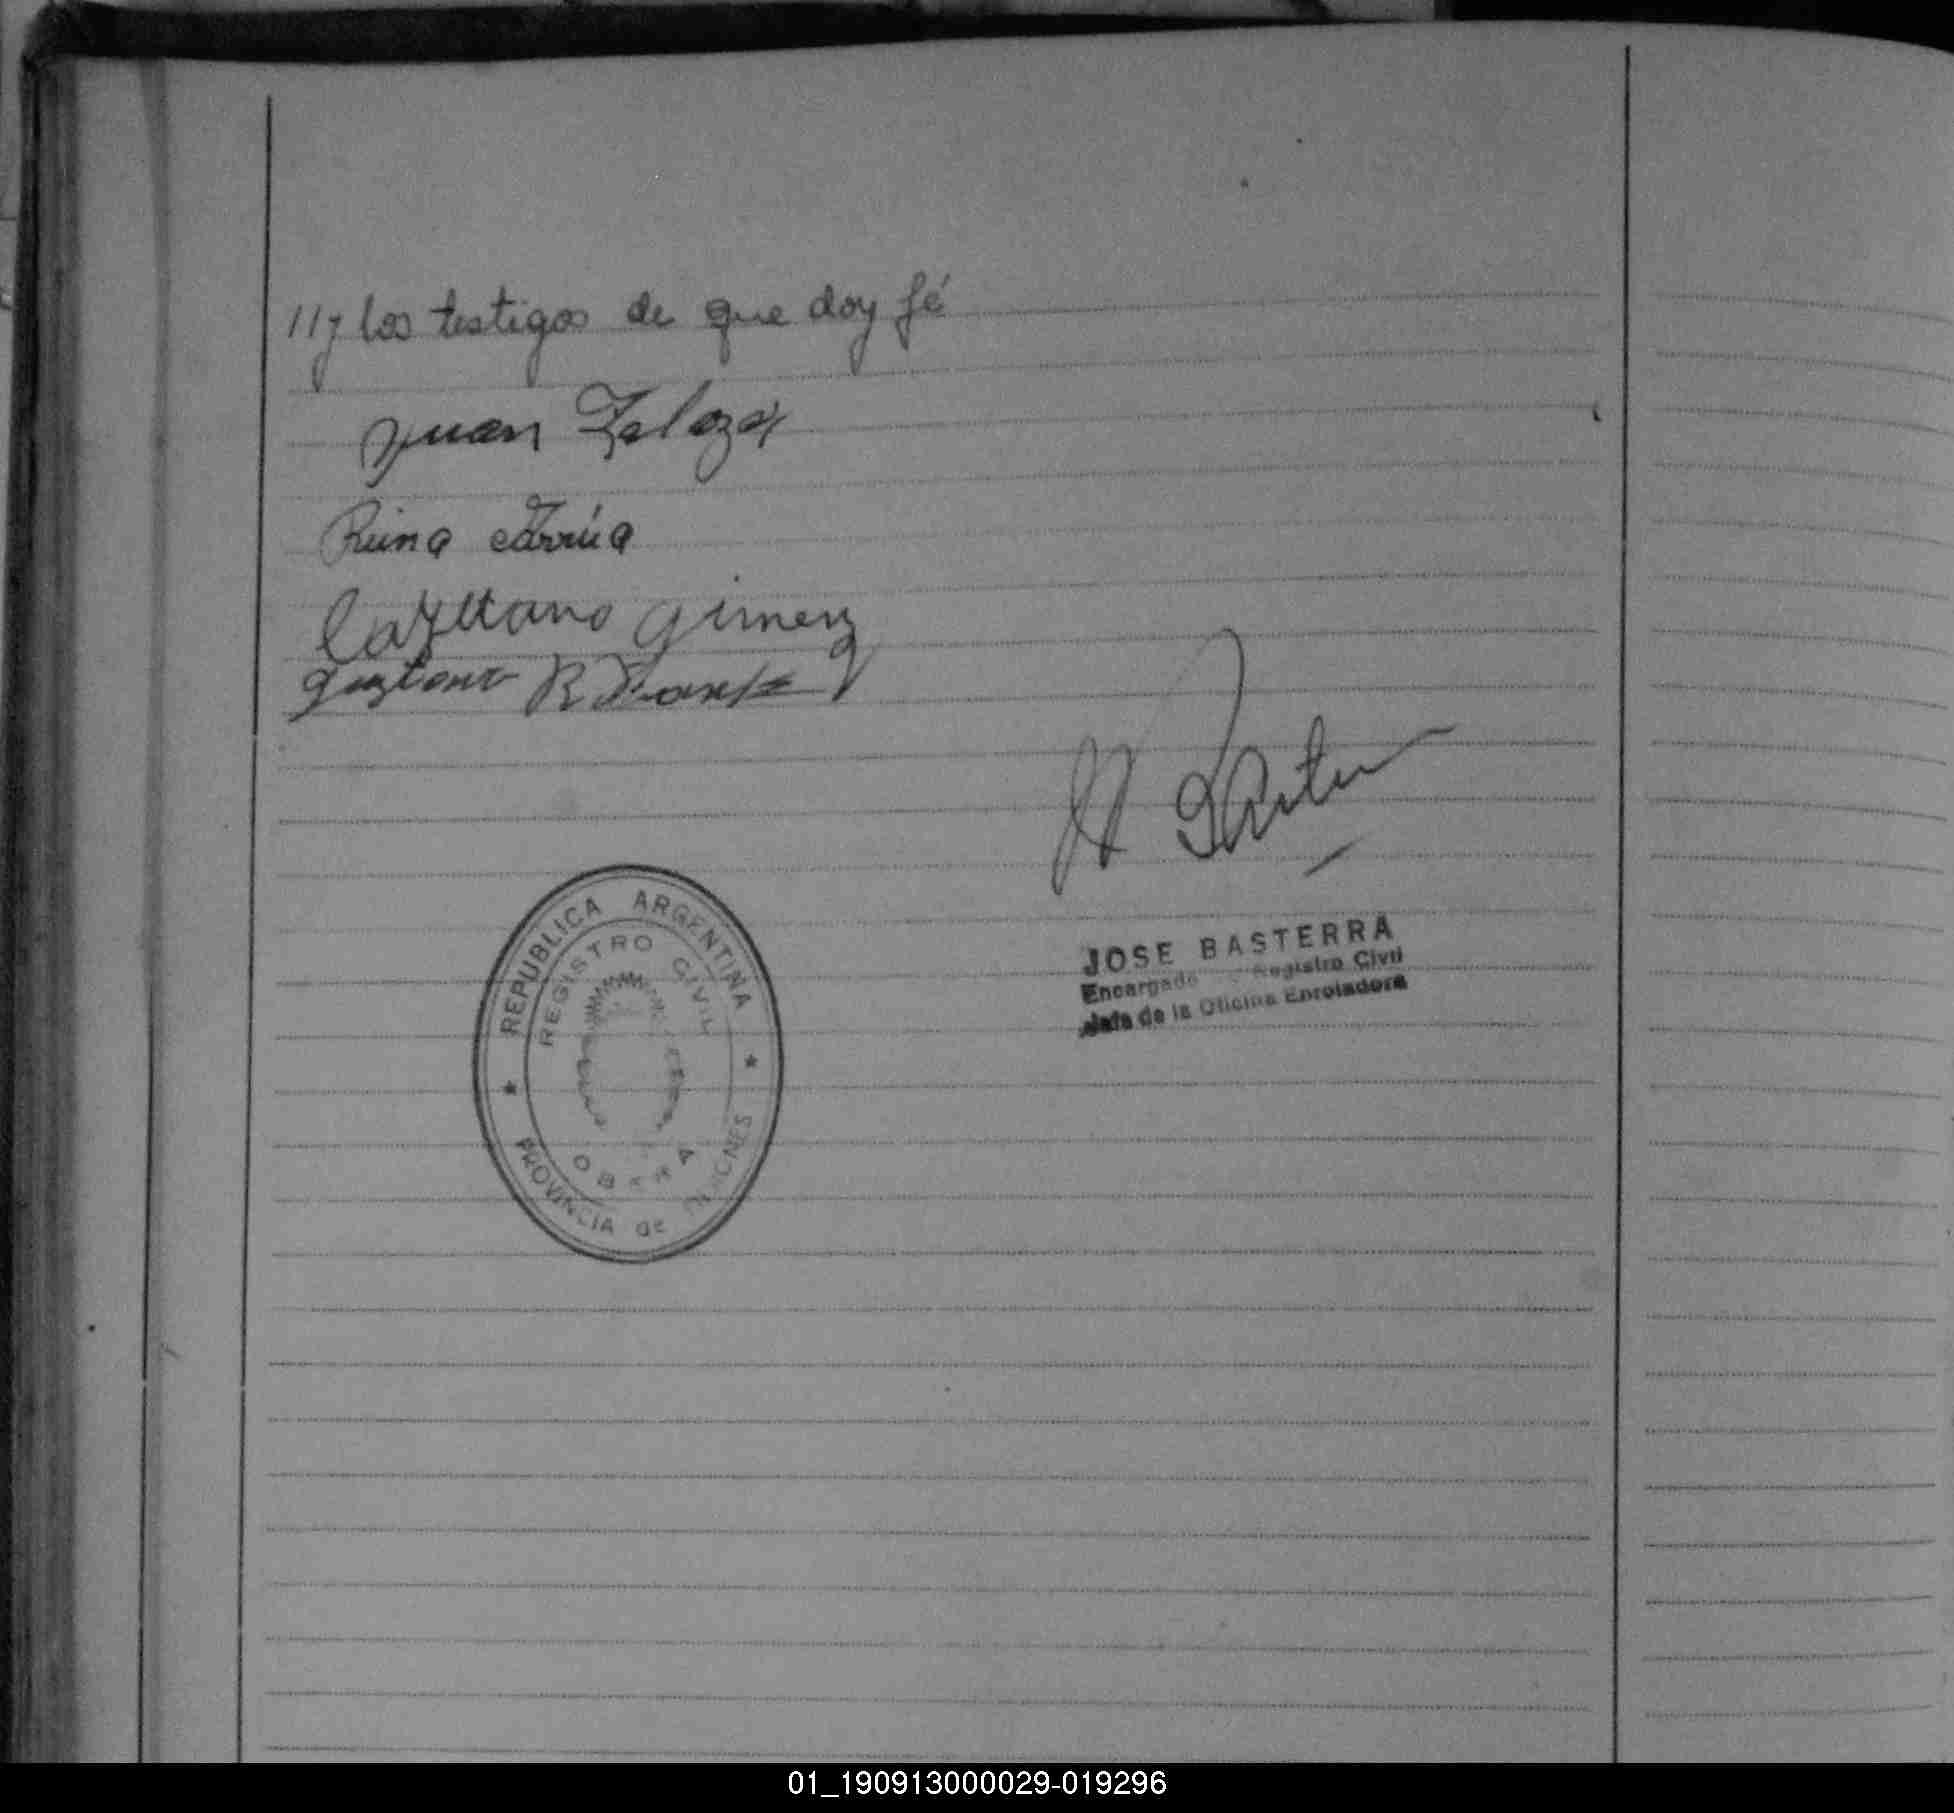 //y los testigos de que doy fé
Juan Zeloza
Reina Farrúa
Cayetano Gimenz
R
JOSE BASTERRA
Encargado Registro Civil
Jefe de la Oficina Enroladora
REPUBLICA ARGENTINA
REGISTRO CIVIL
OBERA
PROVINCIA DE MISIONES
01_190913000029-019296